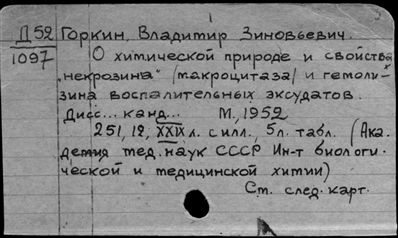 Д52 Горкин, Владимир Зиновьевич.
1097 О химической природе и свойства
"некрозина" (макроцитаза) и гемоли-
зина воспалительных эксудатов.
Дисс... канд... М., 1952
251, 12, XXIX л. с илл., 5 л. табл. (Ака-
демия мед. наук СССР Ин-т биологи-
ческой и медицинской химии)
См. след. карт.